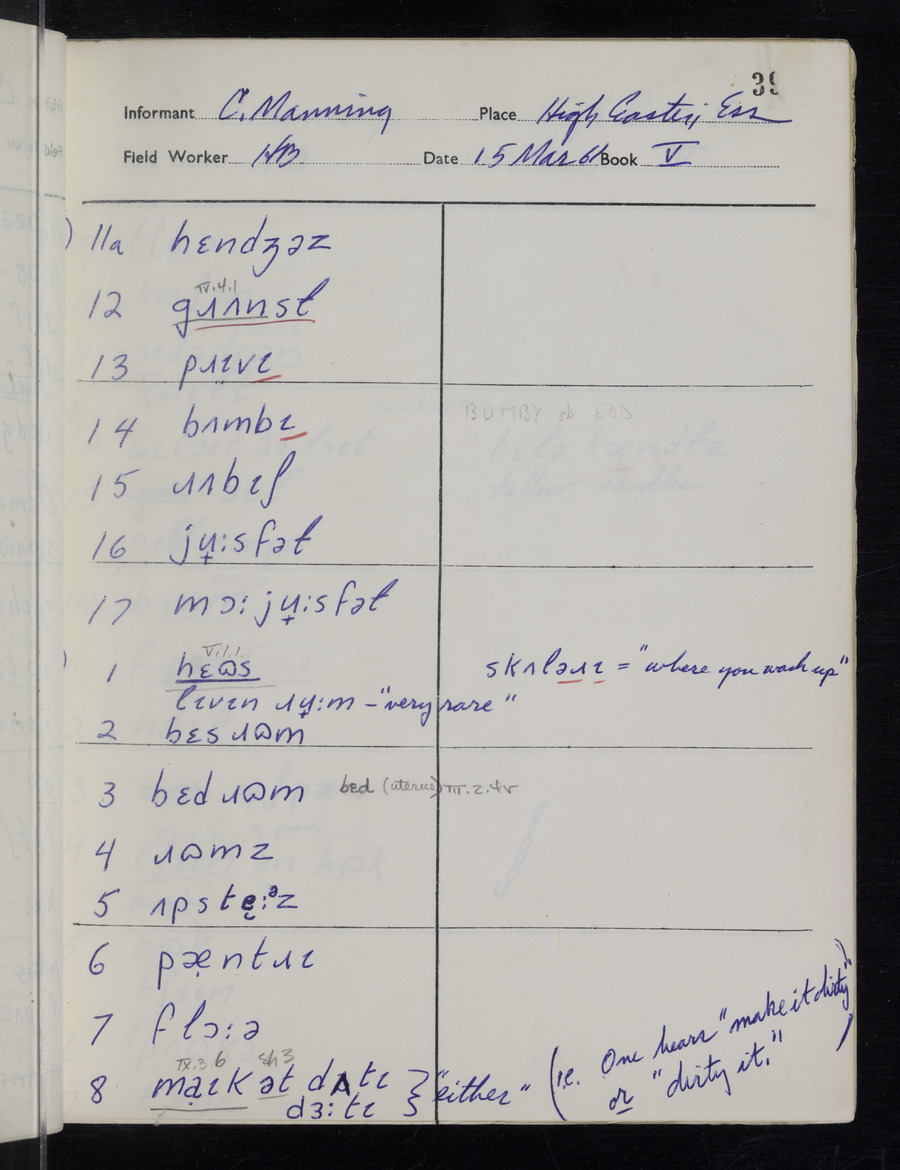 39
Informant C. Manning Place High Easter, Ess
Field Worker HB Date 15 Mar 61 Book V
11a hɛndʒəz
IV.4.1
12 gɹʌnst
13 pɹɪvɪ
14 bʌmbɪ BUMBY sb EDD
15 ɹʌbɪʃ
16 jʉ̟:sfət
17 mɔ: jʉ̟:sfət
V.1.1.
1 hɛɷs skʌləɹɪ = "where you wash up"
lɪvɪn ɹʉ̟:m – "very rare"
2 bɛs ɹɷm
3 bɛd ɹɷm bɛd (uterus) III.2.4v
4 ɹɷmz
5 ʌpste̢:ᵊz
6 pæ̣ntɹɪ
7 flɔ:ə
IX.3.6 sh3
8 mạɪk ət dʌtɪ } "either" (i.e. One hears "make it dirty"
dɜ:tɪ or "dirty it.")